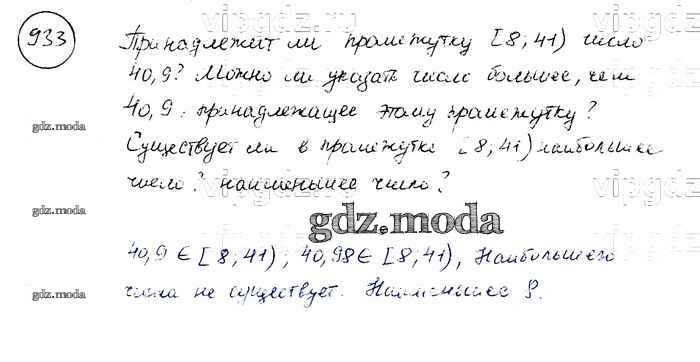 vipgdz
vipgdz
933
Принадлежит ли промежутку [8; 41) число
40,9? Можно ли указать число большее, чем
40,9, принадлежащее этому промежутку?
gdz.moda
Существует ли в промежутке [8; 41) наибольшее
число? наименьшее число?
vipgdz
vipgdz
gdz.moda
gdz.moda
40,9 ∈ [8; 41); 40,98 ∈ [8; 41), Наибольшего
числа не существует. Наименьшее 8.
gdz.moda
vipgdz
vipgdz